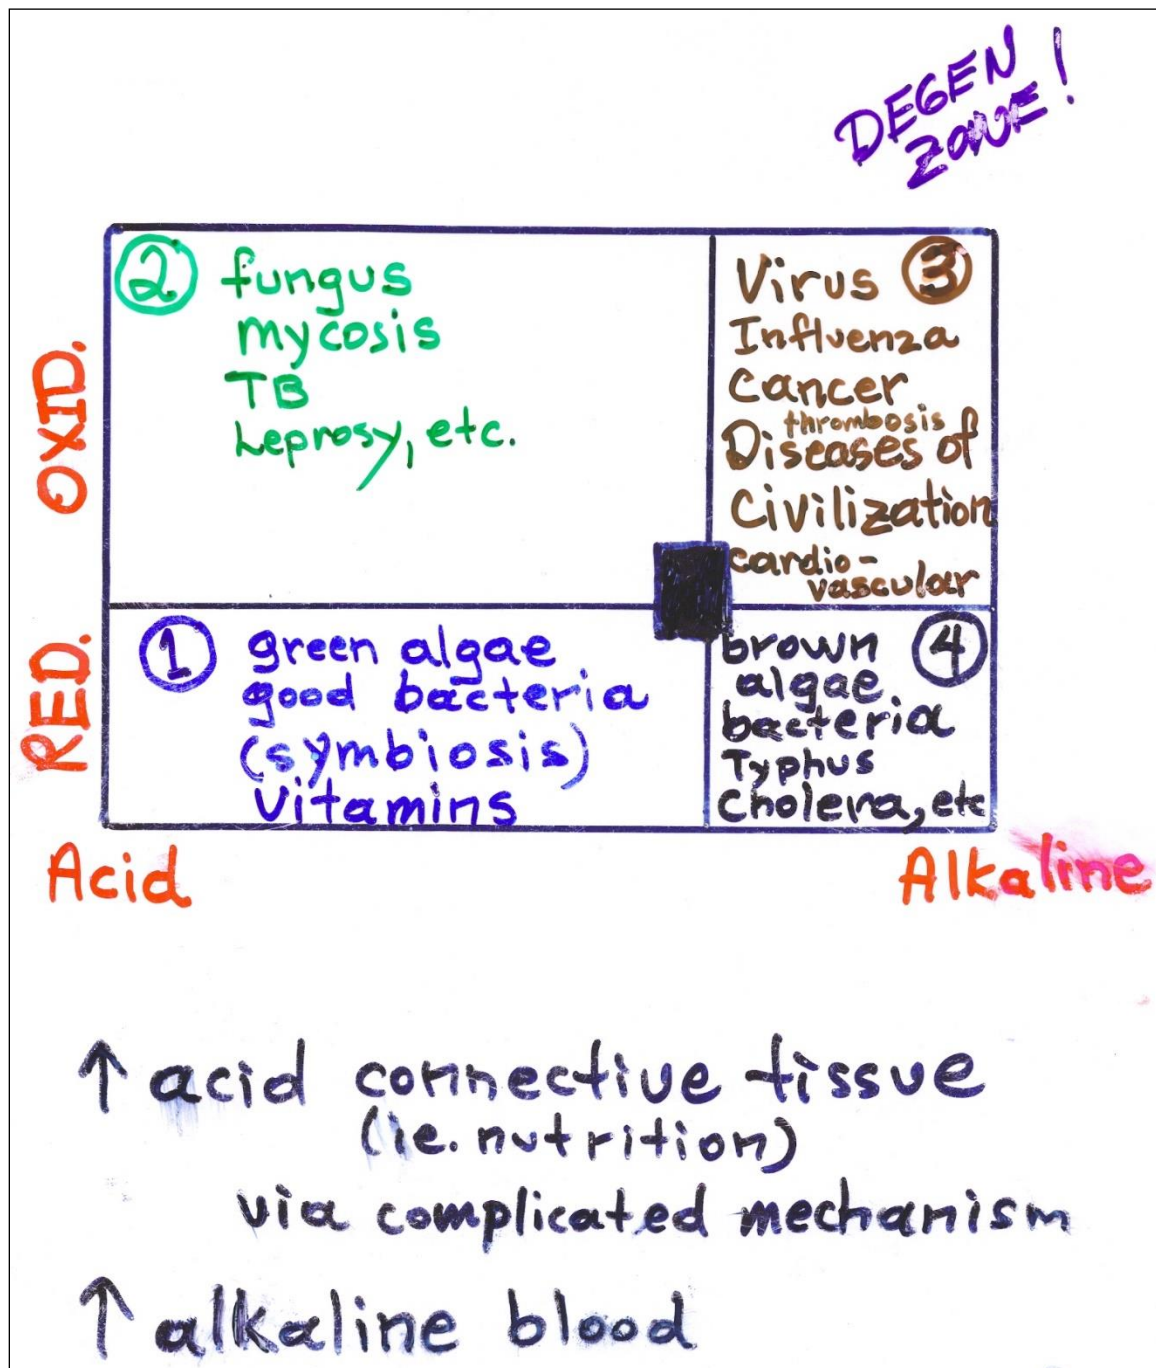 DEGEN
ZONE!
OXID.
② fungus
mycosis
TB
Leprosy, etc.
Virus ③
Influenza
Cancer
thrombosis
Diseases of
Civilization
cardio-
vascular
RED.
① green algae
good bacteria
(symbiosis)
Vitamins
brown ④
algae
bacteria
Typhus
Cholera, etc
Acid
Alkaline
↑ acid connective tissue
(ie. nutrition)
via complicated mechanism
↑ alkaline blood